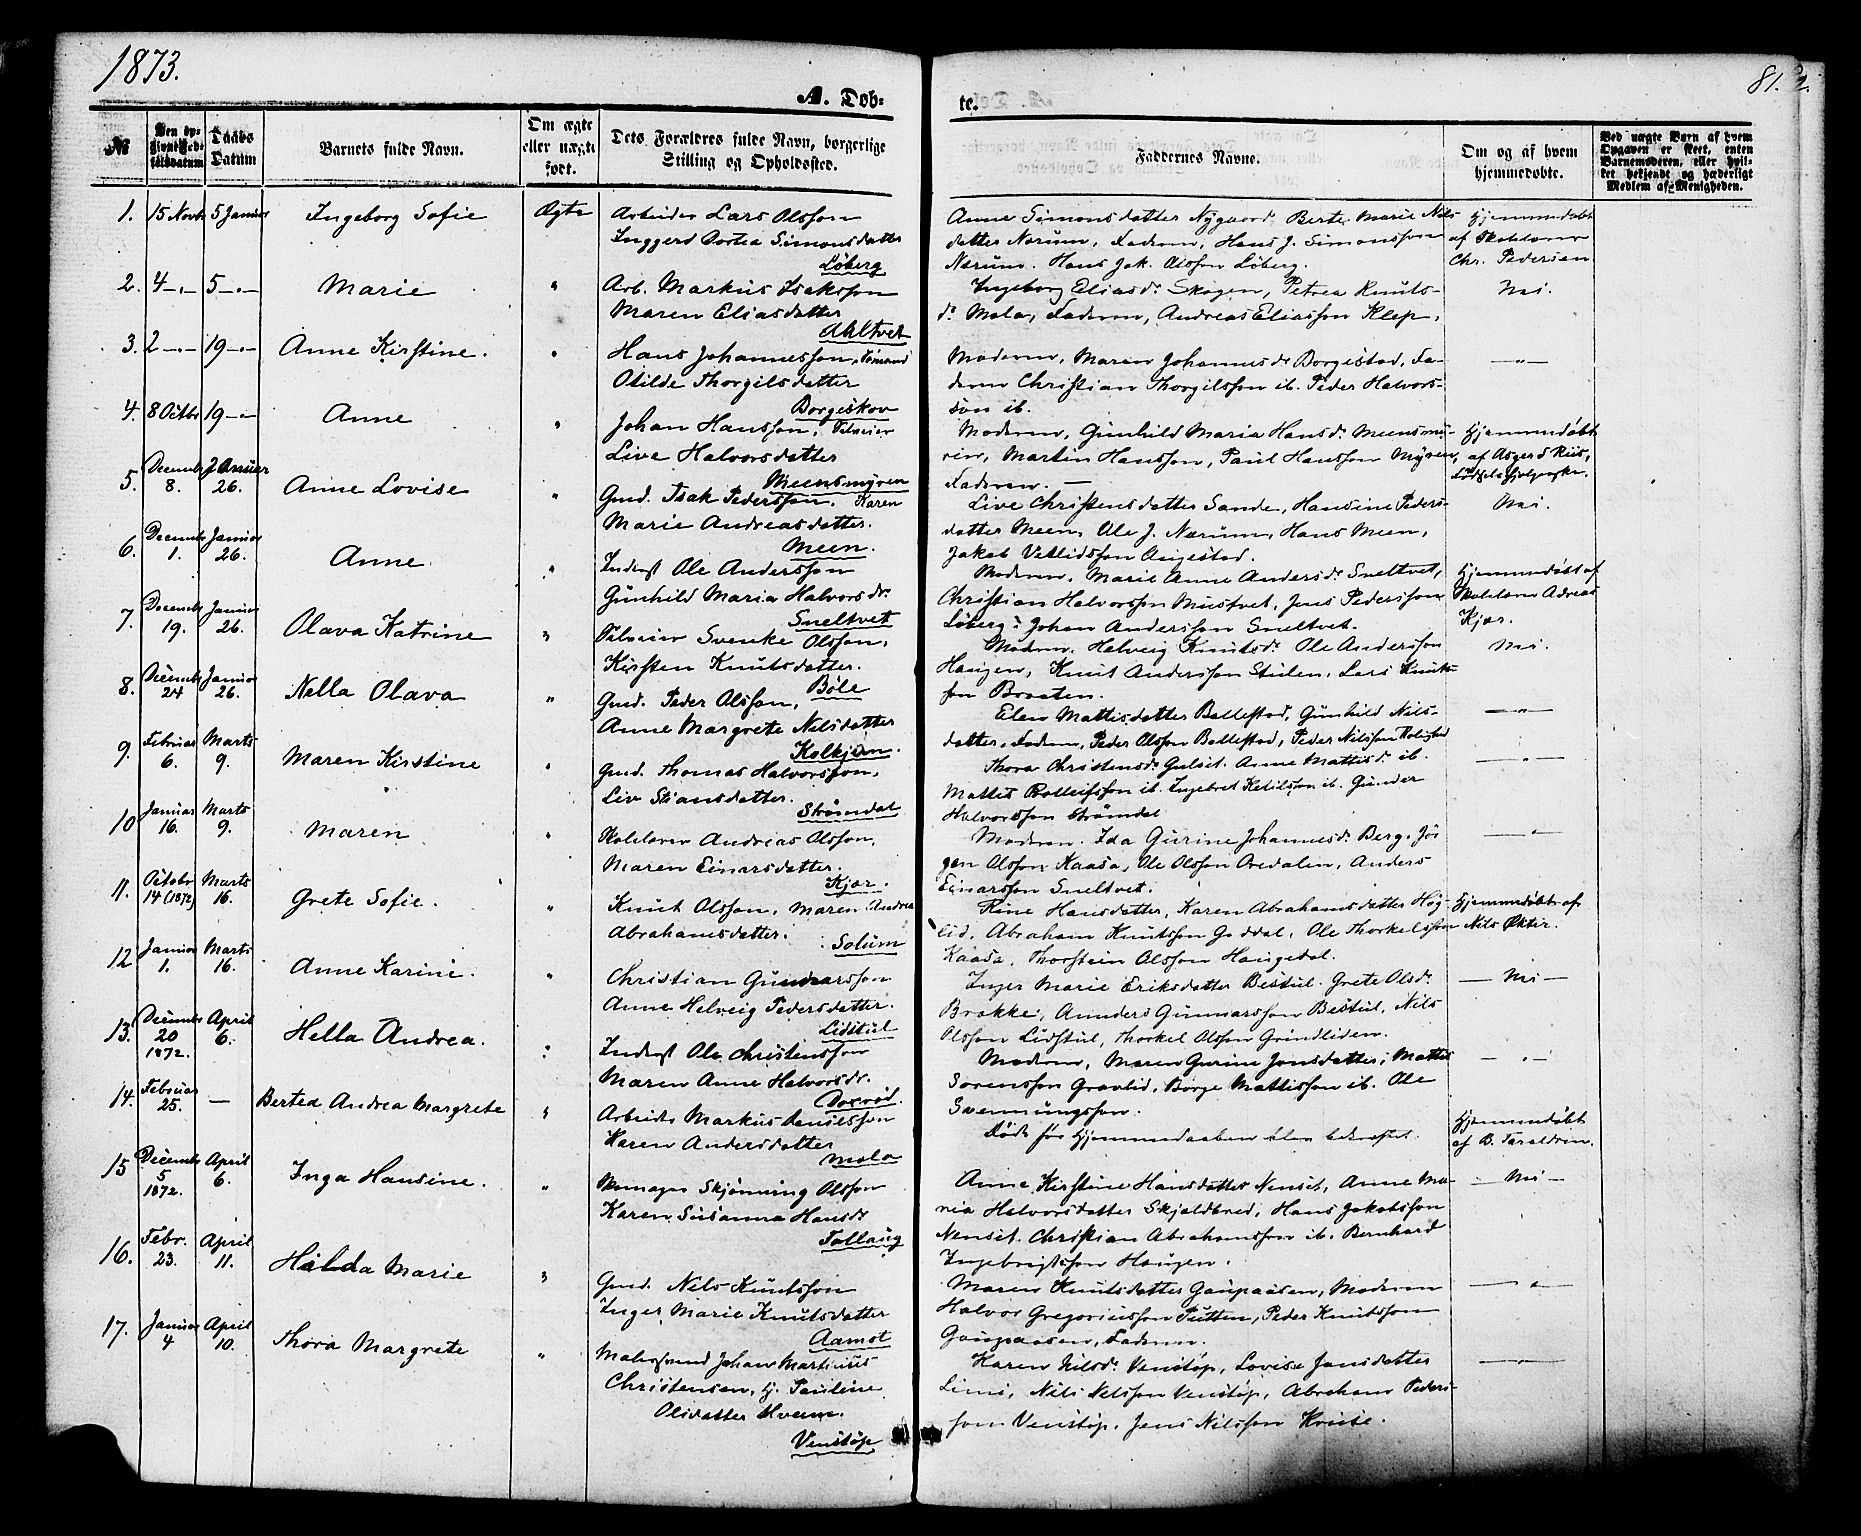 1873.
81.
A. Døb-
te.
№
Daabs Datum
Barnets fulde Navn.
Om ægte eller uægte født.
Dets Forældres fulde Navn, borgerlige Stilling og Opholdssted.
Faddernes Navne.
Om og af hvem hjemmedøbt.
Ved uægte Barn af hvem Opgaven er skeet, enten Barnemoderen, eller hvilket bekjendt og hæderligt Medlem af Menigheden.
1. 15 Novbr 5 Januar Ingeborg Sofie Ægte Arbeider Lars Olsson
Inggerd Dortea Simonsdatter
Löberg
Anne Simonsdatter Nygaard, Berte Marie Nils-
datter Nærum, Faderen, Hans J. Simonsson
Nærum. Hans Jak. Olsson Löberg.
Hjemmedöbt
af Skolelærer
Chr. Pedersen
2. 4 -"- 5 -"- Marie " Arb. Markus Isaksson
Maren Eliasdatter
Ahltvet
Ingeborg Eliasdr. Skogen, Petrea Knuts-
dr. Mæla, Faderen, Andreas Eliasson Klep.
Nei.
3. 2 -"- 19 -"- Anne Kirstine. " Hans Johannesson, Sömand
Otilde Thorgilsdatter
Borgeskov
Moderen, Maren Johannesdr. Borgestad, Fa-
deren Christian Thorgilsson ib. Peder Halvors-
son ib.
-"-
4. 8 Octbr 19 -"- Anne " Johan Hansson, Pilveier
Live Halvorsdatter
Meensmyren
Moderen, Gunhild Maria Hansdr. Meensmy-
ren, Martin Hansson, Paul Hansson Myren,
Faderen. —
Hjemmedöbt
af Asgerd Riis,
5. Decembr 8. Januar 26. Anne Lovise " Gmd. Isak Pedersson. Karen
Marie Andreasdatter.
Meen.
Live Christensdatter Sande, Hansine Peders-
datter Meen, Ole J. Nærum, Hans Meen,
Jakob Vetlidsson Aagestad.
Nei.
6. Decembr 1. Januar 26. Anne. " Inderst Ole Andersson
Gunhild Maria Halvorsdr.
Sneltvet
Moderen. Marie Anne Andersdr. Sneltvet,
Christian Halvorsson Mustvet, Jens Pedersson
Löberg, Johan Andersson Sneltvet.
Hjemmedöbt af
Skolelærer Adreas
Kjær.
7. Decembr 19. Januar 26. Olava Katrine " Pilveier Svenke Olsson,
Kirsten Knutsdatter.
Böle
Moderen. Helveig Knutsdr. Ole Andersson
Haugen, Knut Andersson Stulen, Lars Knuts-
son Braaten.
Nei.
8. Decembr 24 Januar 26. Nella Olava " Gmd. Peder Olsson,
Anne Margrete Nilsdatter
Kolkjen.
Elen Mattisdatter Ballestad, Gunhild Nils-
datter, Faderen, Peder Olsson Ballestad, Peder Nilsson Rolighed
-"-
9. Februar 6. Marts 9. Maren Kirstine " Gmd. Thomas Halvorsson,
Liv Stiansdatter.
Strömdal
Thora Christensdr. Gulset. Anne Mattisdr. ib.
Mattis Rolleifsson ib. Ingebret Ketilsson ib. Gunder
Halvorsson Strömdal
-"-
10 Januar 16. Marts 9. Maren " Skolelærer Andreas Olsson,
Maren Einarsdatter.
Kjær.
Moderen. Ida Gurine Johannesdr. Berg. Jör
gen Olsson Kaasa, Ole Olsson Oredalen, Anders
Einarsson Sneltvet.
-"-
11. Octobr 14 (1872) Marts 16. Grete Sofie. " Knut Olsson, Maren Andrea
Abrahamsdatter.
Solum
Rine Hansdatter, Karen Abrahamsdatter Hög-
lid, Abraham Knutsson Goddal, Ole Thorkelsson
Kaasa, Thorstein Olsson Haugedal.
Hjemmedöbt af
NilsÖkter.
12 Januar 1. Marts 16. Anne Karine. " Christian Gunnarsson
Anne Helveig Pedersdatter.
Lidstul
Inger Marie Eriksdatter Bestul. Grete Olsdr.
Brakke, Annders Gunnarsson Bestul, Nils
Olsson Lidstul, Thorkel Olsson Grindliden.
— Nei —
13. Decembr 20 1872. April 6. Hella Andrea. " Inderst Ole Christensson
Maren Anne Halvorsdr.
Doxrod.
Moderen, Maren Gurine Jonsdatter, Mattis
Sorensson Gravlid, Börge Mattisson ib. Ole
Svennungsson.
-"-
14. Februar 25. — Bertea Andrea Margrete " Arbeider Markus Jensilsson
Karen Andersdatter
Mæla
Döde för Hjemmedaaben blev bekræftet.
Hjemmedöbt
af B. Taraldsen.
15 Decembr 5 1872. April 6. Inga Hansine. " Skomager Skjönning Olsson
Karen Susanna Hansdr
Follaug
Anne Kirstine Hansdatter Nenset, Anne Ma-
ria Halvorsdatter Skjeldbred, Hans Jakobsson
Nenset, Christian Abrahamsson ib. Bernhard
Ingebrigtsson Haugen.
— Nei —
16. Febr. 23. April 11. Hilda Marie " Gmd. Nils Knutsson
Inger Marie Knutsdatter
Aamot
Maren Knutsdatter Gaupaasen, Moderen
Halvor Gregoriusson Putten, Peder Knutsson
Gaupaasen, Faderen.
-"-
17. Januar 4 April 10. Thora Margrete " Malersvend Johan Martinius
Christensen, Hj. Pauline
Olsdatter Hvem.
Venstöp
Karen Nilsdr. Venstöp, Lovise Jansdatter
Limi, Nils Nilsson Venstöp, Abraham Peders-
son Venstöp, Jens Nilsson Kruse.
-"-